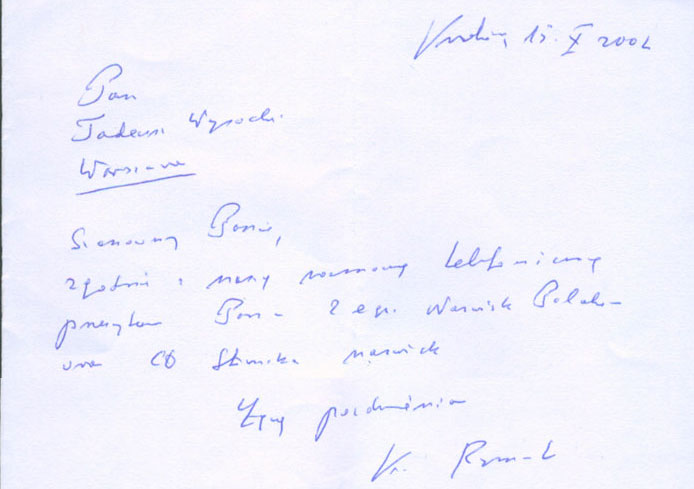 Kraków, 15.X 2002
Pan
Tadeusz Wysocki
Warszawa
Szanowny Panie,
zgodnie z naszą rozmową telefoniczną
przesyłam Panu 2 egz. nazwisk Polaków
oraz CD Słownika nazwisk
Łączę pozdrowienia